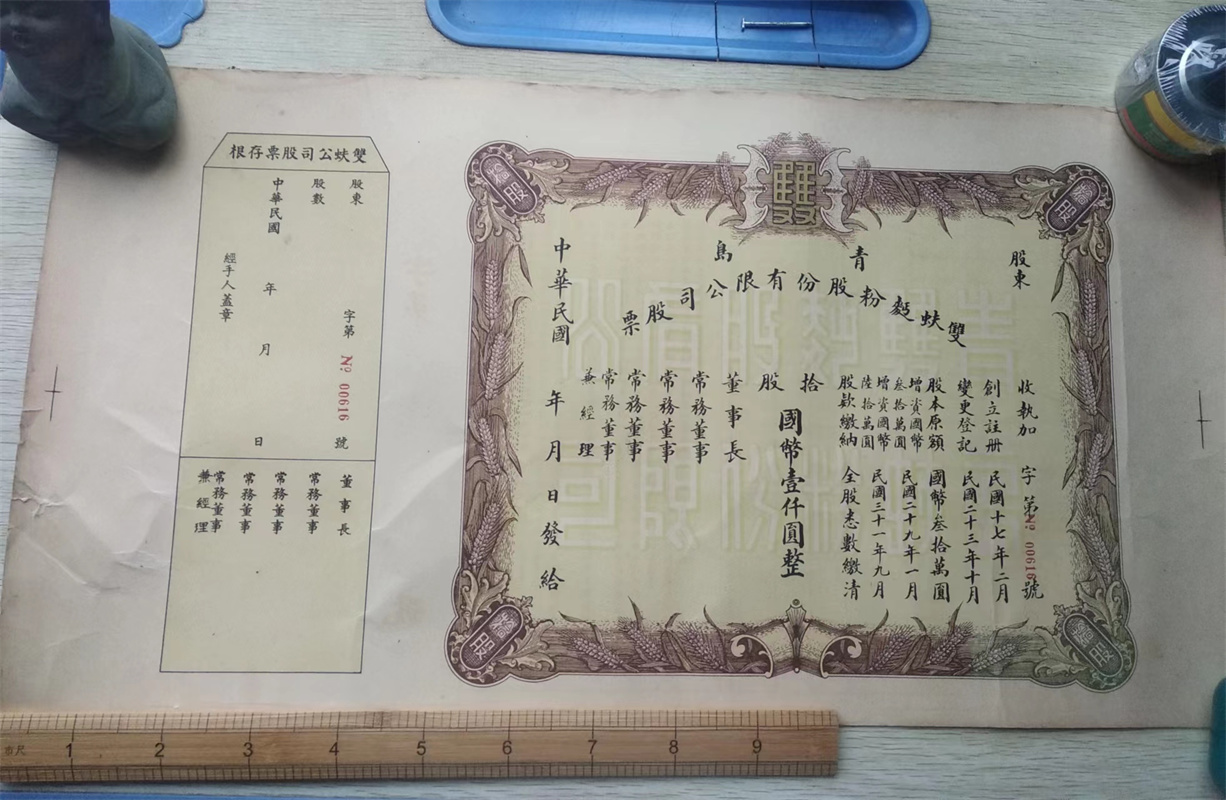 雙
股東
青島
雙蚨麫粉股份有限公司股票
收執加 字第 No 00616 號
創立註册 民國十七年二月
變更登記 民國二十三年十月
股本原額 國幣叁拾萬圓
增資國幣叁拾萬圓 民國二十九年一月
增資國幣陸拾萬圓 民國三十一年九月
股款繳納 全股悉數繳清
拾股 國幣壹仟圓整
董事長
常務董事
常務董事
常務董事
常務董事兼經理
中華民國 年 月 日發給
雙蚨公司股票存根
股東 字第 No 00616 號
股數
中華民國 年 月 日
經手人蓋章
董事長
常務董事
常務董事
常務董事
常務董事兼經理
市尺 1 2 3 4 5 6 7 8 9